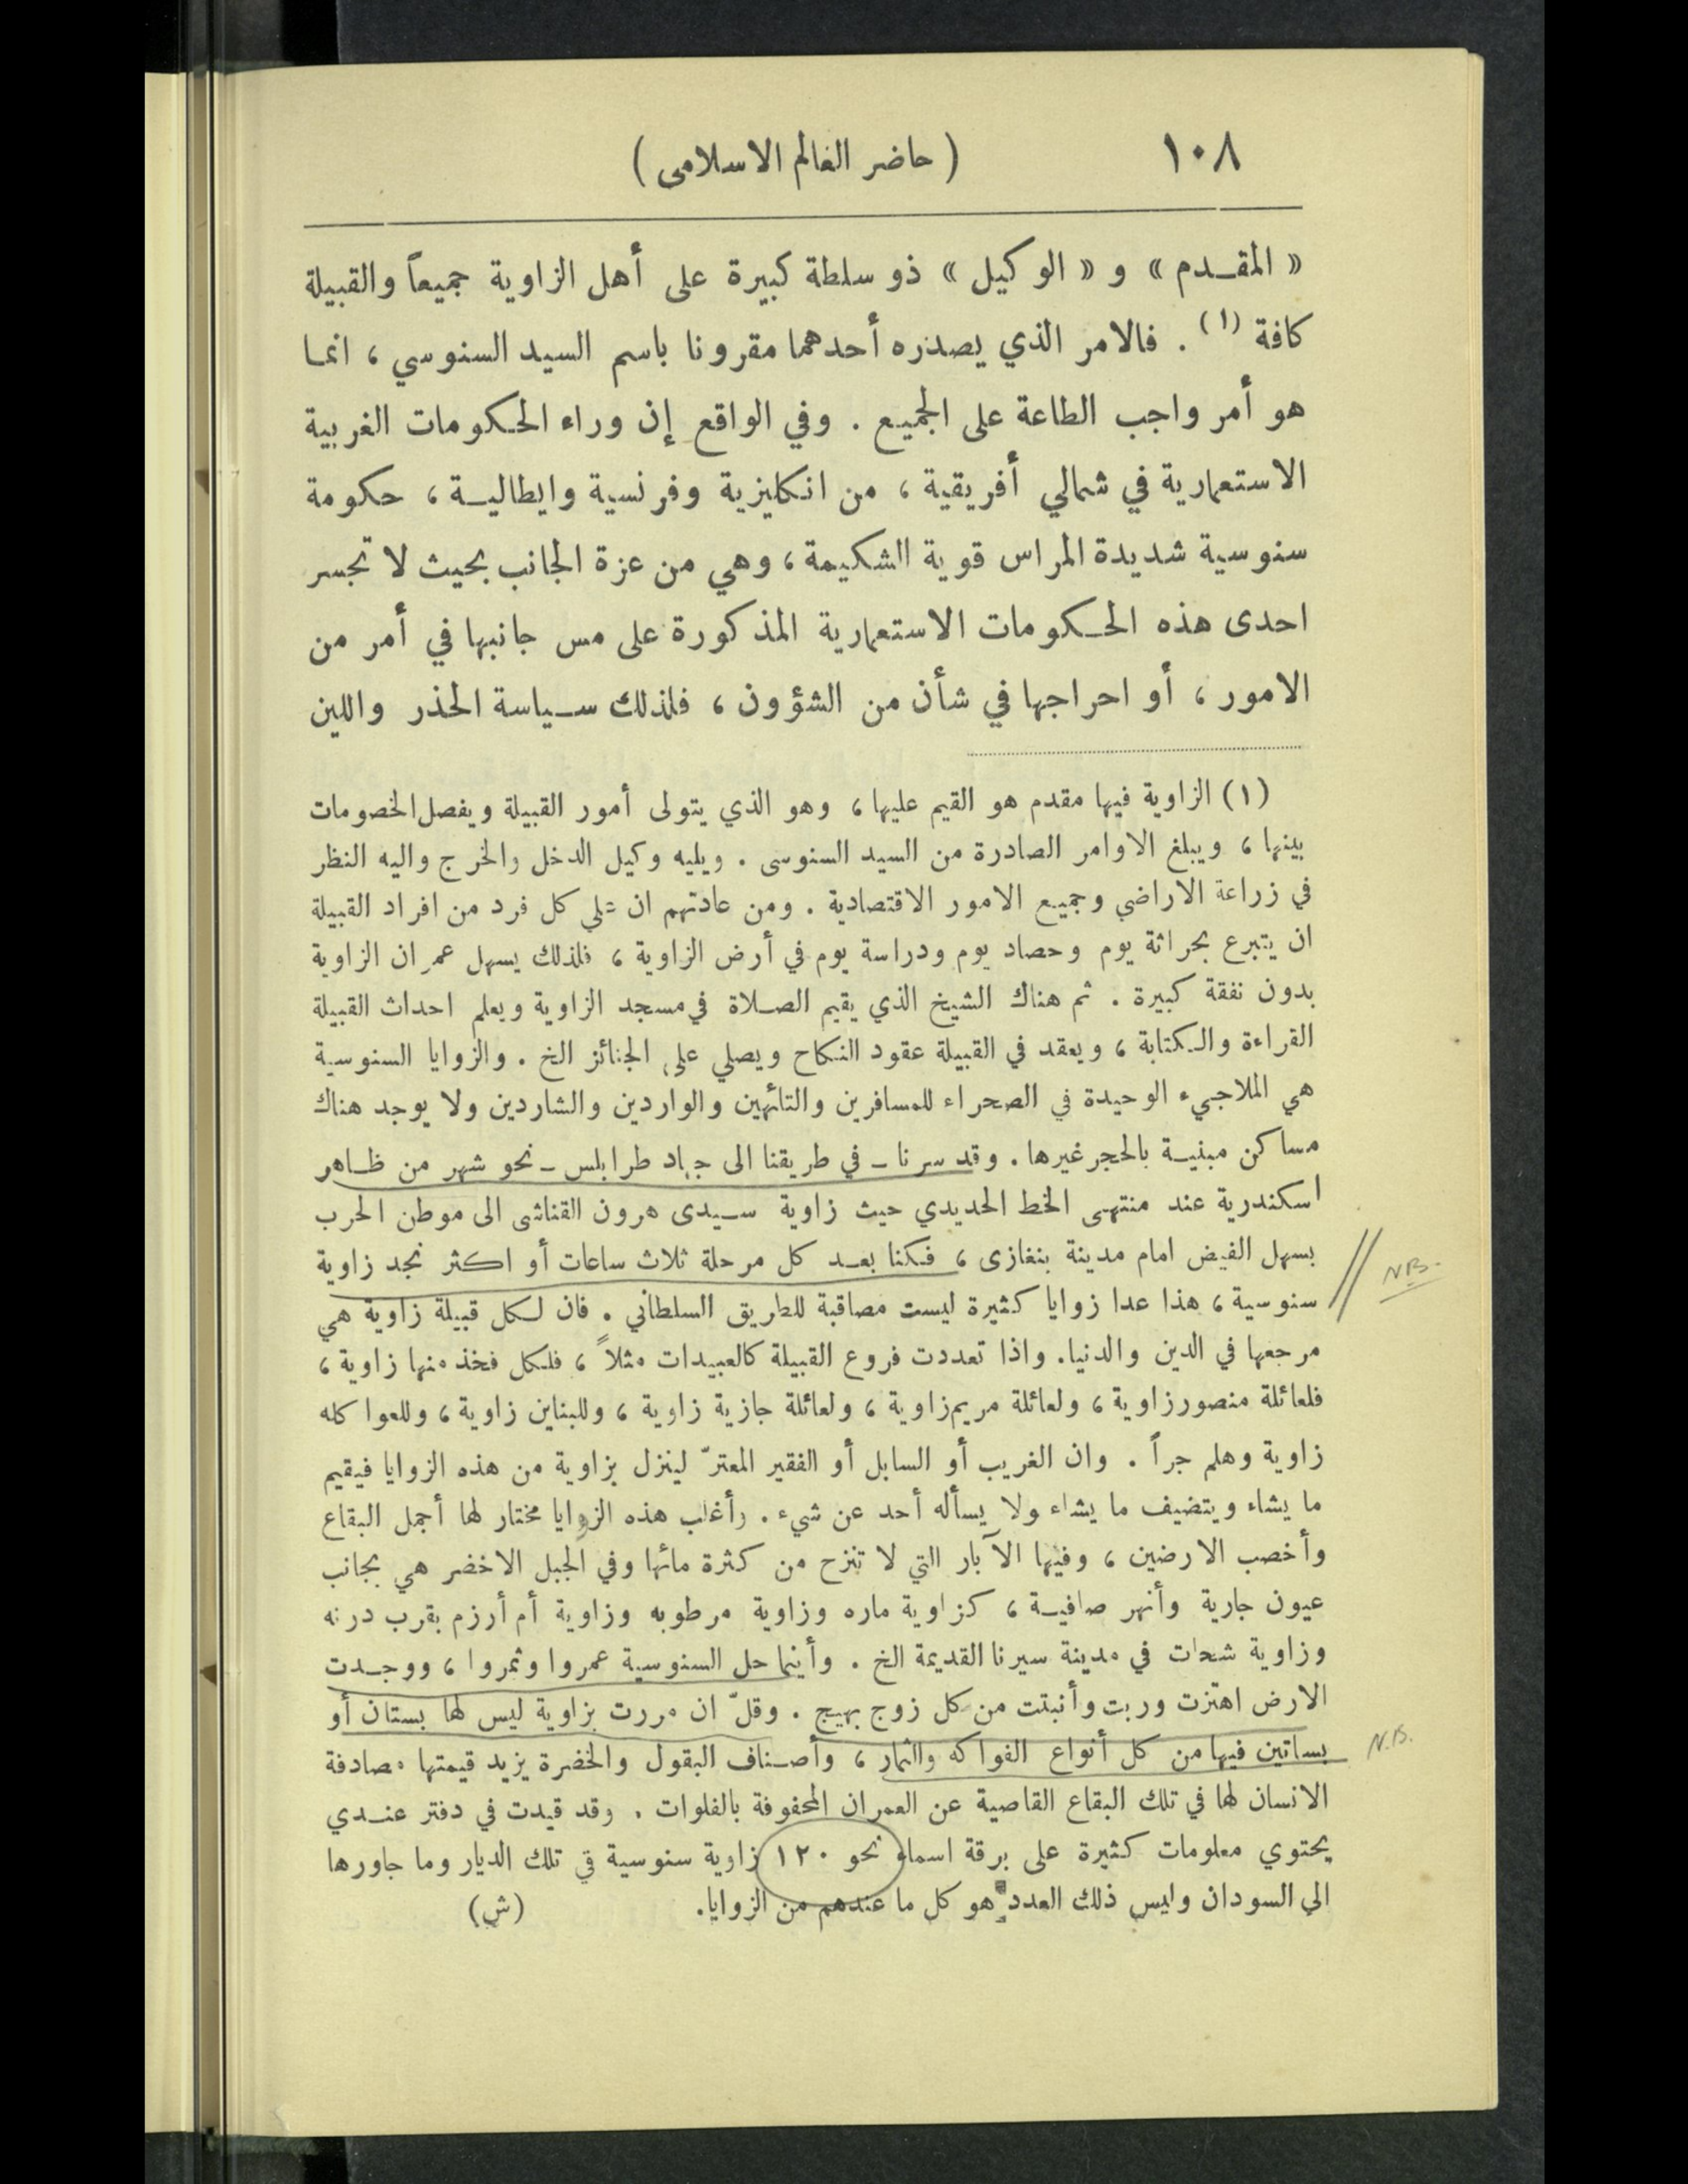 ١٠٨
( حاضر العالم الاسلامي )
« المقـدم » و « الوكيل » ذو سلطة كبيرة على أهل الزاوية جميعاً والقبيلة
كافة (١) . فالامر الذي يصدره أحدهما مقرونا باسم السيد السنوسي ، انما
هو أمر واجب الطاعة على الجميع . وفي الواقع إن وراء الحكومات الغربية
الاستعمارية في شمالي أفريقية ، من انكليزية وفرنسية وايطاليـة ، حكومة
سنوسية شديدة المراس قوية الشكيمة ، وهي من عزة الجانب بحيث لا تجسر
احدى هذه الحكومات الاستعمارية المذكورة على مس جانبها في أمر من
الامور ، أو احراجها في شأن من الشؤون ، فلذلك سياسة الحذر واللين
(١) الزاوية فيها مقدم هو القيم عليها ، وهو الذي يتولى أمور القبيلة ويفصل الخصومات
بينها ، ويبلغ الاوامر الصادرة من السيد السنوسى . ويليه وكيل الدخل والخرج واليه النظر
في زراعة الاراضي وجميع الامور الاقتصادية . ومن عادتهم ان على كل فرد من افراد القبيلة
ان يتبرع بحراثة يوم وحصاد يوم ودراسة يوم في أرض الزاوية ، فلذلك يسهل عمران الزاوية
بدون نفقة كبيرة . ثم هناك الشيخ الذي يقيم الصلاة في مسجد الزاوية ويعلم احداث القبيلة
القراءة والكتابة ، ويعقد في القبيلة عقود النكاح ويصلي على الجنائز الخ . والزوايا السنوسية
هي الملاجيء الوحيدة في الصحراء للمسافرين والتائهين والواردين والشاردين ولا يوجد هناك
مساكن مبنيـة بالحجر غيرها . وقد سرنا ـ في طريقنا الى جهاد طرابلس ـ نحو شهر من ظاهر
اسكندرية عند منتهى الخط الحديدي حيث زاوية سيدى هرون القناشى الى موطن الحرب
بسهل الفيض امام مدينة بنغازى ، فكنا بعـد كل مرحلة ثلاث ساعات أو اكثر نجد زاوية
N.B.
سنوسية ، هذا عدا زوايا كثيرة ليست مصاقبة للطريق السلطاني . فان لكل قبيلة زاوية هي
مرجعها في الدين والدنيا . واذا تعددت فروع القبيلة كالعبيدات مثلاً ، فلكل فخذ منها زاوية ،
فلعائلة منصور زاوية ، ولعائلة مريم زاوية ، ولعائلة جازية زاوية ، وللبناين زاوية ، وللعواكله
زاوية وهلم جراً . وان الغريب أو السابل أو الفقير المعترّ لينزل بزاوية من هذه الزوايا فيقيم
ما يشاء ويتضيف ما يشاء ولا يسأله أحد عن شيء . وأغلب هذه الزوايا مختار لها أجمل البقاع
وأخصب الارضين ، وفيها الآبار التي لا تنزح من كثرة مائها وفي الجبل الاخضر هي بجانب
عيون جارية وأنهر صافيـة ، كزاوية ماره وزاوية مرطوبه وزاوية أم أرزم بقرب درنه
وزاوية شحات في مدينة سيرنا القديمة الخ . وأينما حل السنوسية عمروا وثمروا ، ووجـدت
الارض اهتزت وربت وأنبتت من كل زوج بهيج . وقلّ ان مررت بزاوية ليس لها بستان أو
بساتين فيها من كل أنواع الفواكه والثمار ، وأصناف البقول والخضرة يزيد قيمتها مصادفة
N.B.
الانسان لها في تلك البقاع القاصية عن العمران المحفوفة بالفلوات . وقد قيدت في دفتر عنـدي
يحتوي معلومات كثيرة على برقة اسماء نحو ١٢٠ زاوية سنوسية في تلك الديار وما جاورها
الي السودان وليس ذلك العدد هو كل ما عندهم من الزوايا . (ش)